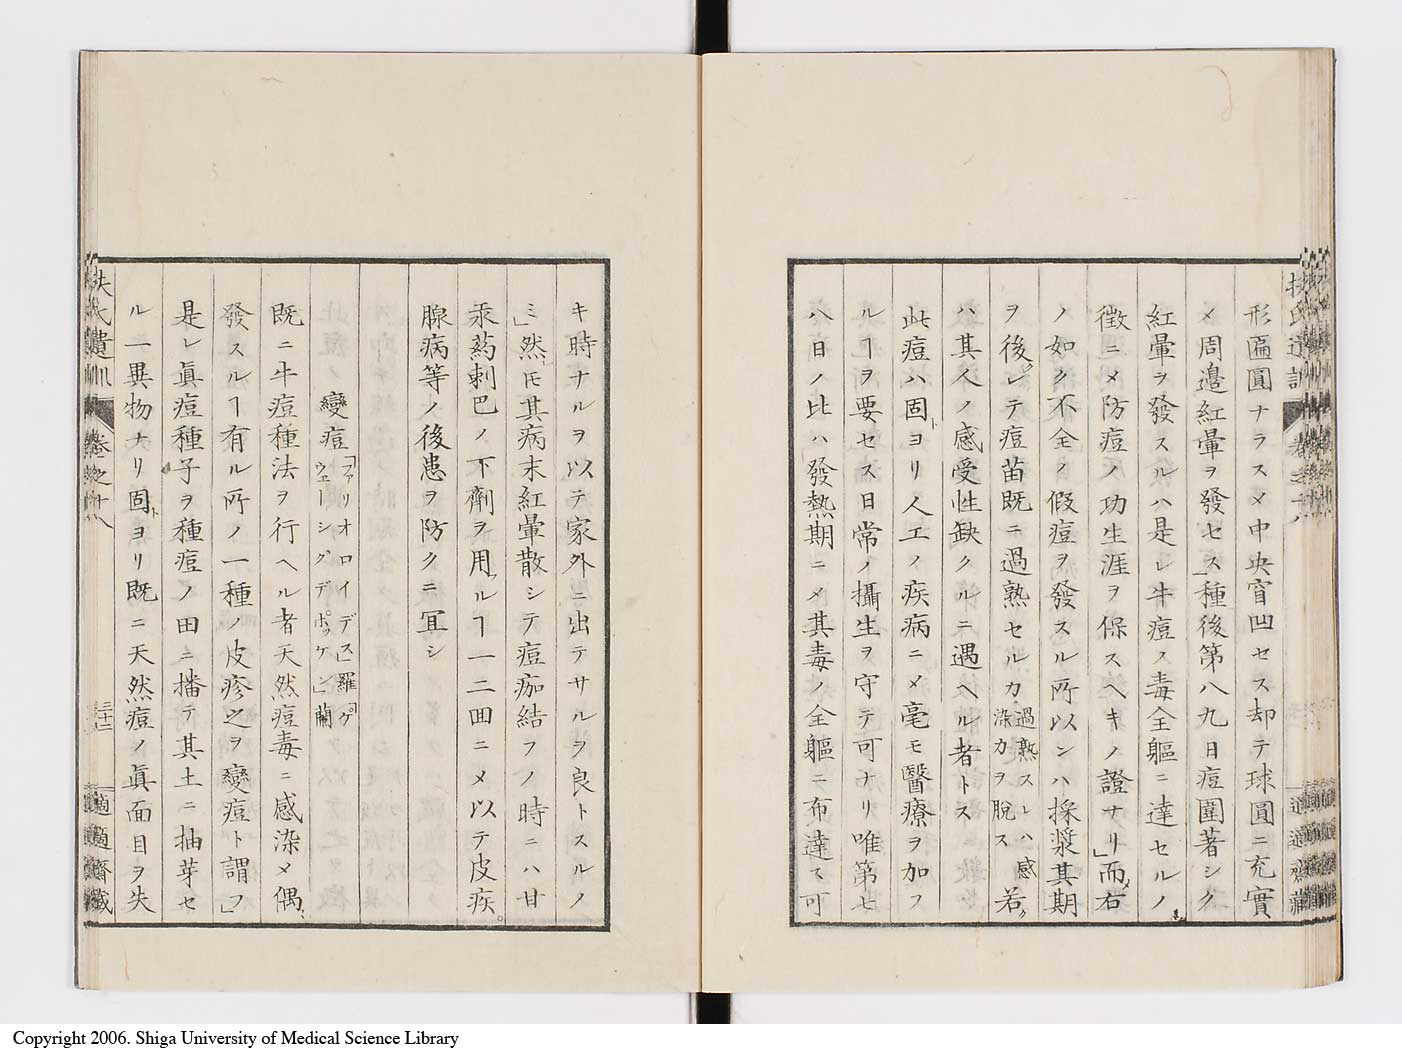 扶氏遺訓
適適齋藏
形匾圓ナラスメ中央窅凹セス却テ球圓ニ充實
メ周邉紅暈ヲ發セス」種後第八九日痘圍著シク
紅暈ヲ發スルハ是レ牛痘ノ毒全軀ニ達セルノ
徴ニメ防痘ノ功生涯ヲ保スヘキノ證ナリ」而メ右
ノ如ク不全ノ假痘ヲ發スル所以ンハ採漿其期
ヲ後レテ痘苗既ニ過熟セルカ過熟スレハ感
染力ヲ脱ス若ク
ハ其人ノ感受性缺クル片ニ遇ヘル者トス
此痘ハ固ヨリ人工ノ疾病ニメ毫モ醫療ヲ加フ
ルヿヲ要セス日常ノ攝生ヲ守テ可ナリ唯第七
八日ノ比ハ發熱期ニメ其毒ノ全軀ニ布達ス可
キ時ナルヲ以テ家外ニ出テサルヲ良トスルノ
ミ」然ニ𪜈其病末紅暈散シテ痘痂結フノ時ニハ甘
汞葯剌巴ノ下劑ヲ用ルヿ一二回ニメ以テ皮疾
腺病等ノ後患ヲ防クニ冝シ
變痘「ファリオロイデス」羅
ウェーシグデポッケン」蘭
既ニ牛痘種法ヲ行ヘル者天然痘毒ニ感染メ偶
發スルヿ有ル所ノ一種ノ皮疹之ヲ變痘ト謂フ」
是レ眞痘種子ヲ種痘ノ田ニ播テ其土ニ抽芽セ
ル一異物ナリ固ヨリ既ニ天然痘ノ眞面目ヲ失
扶氏遺訓 卷之十八
三十二
適適齋藏
Copyright 2006. Shiga University of Medical Science Library